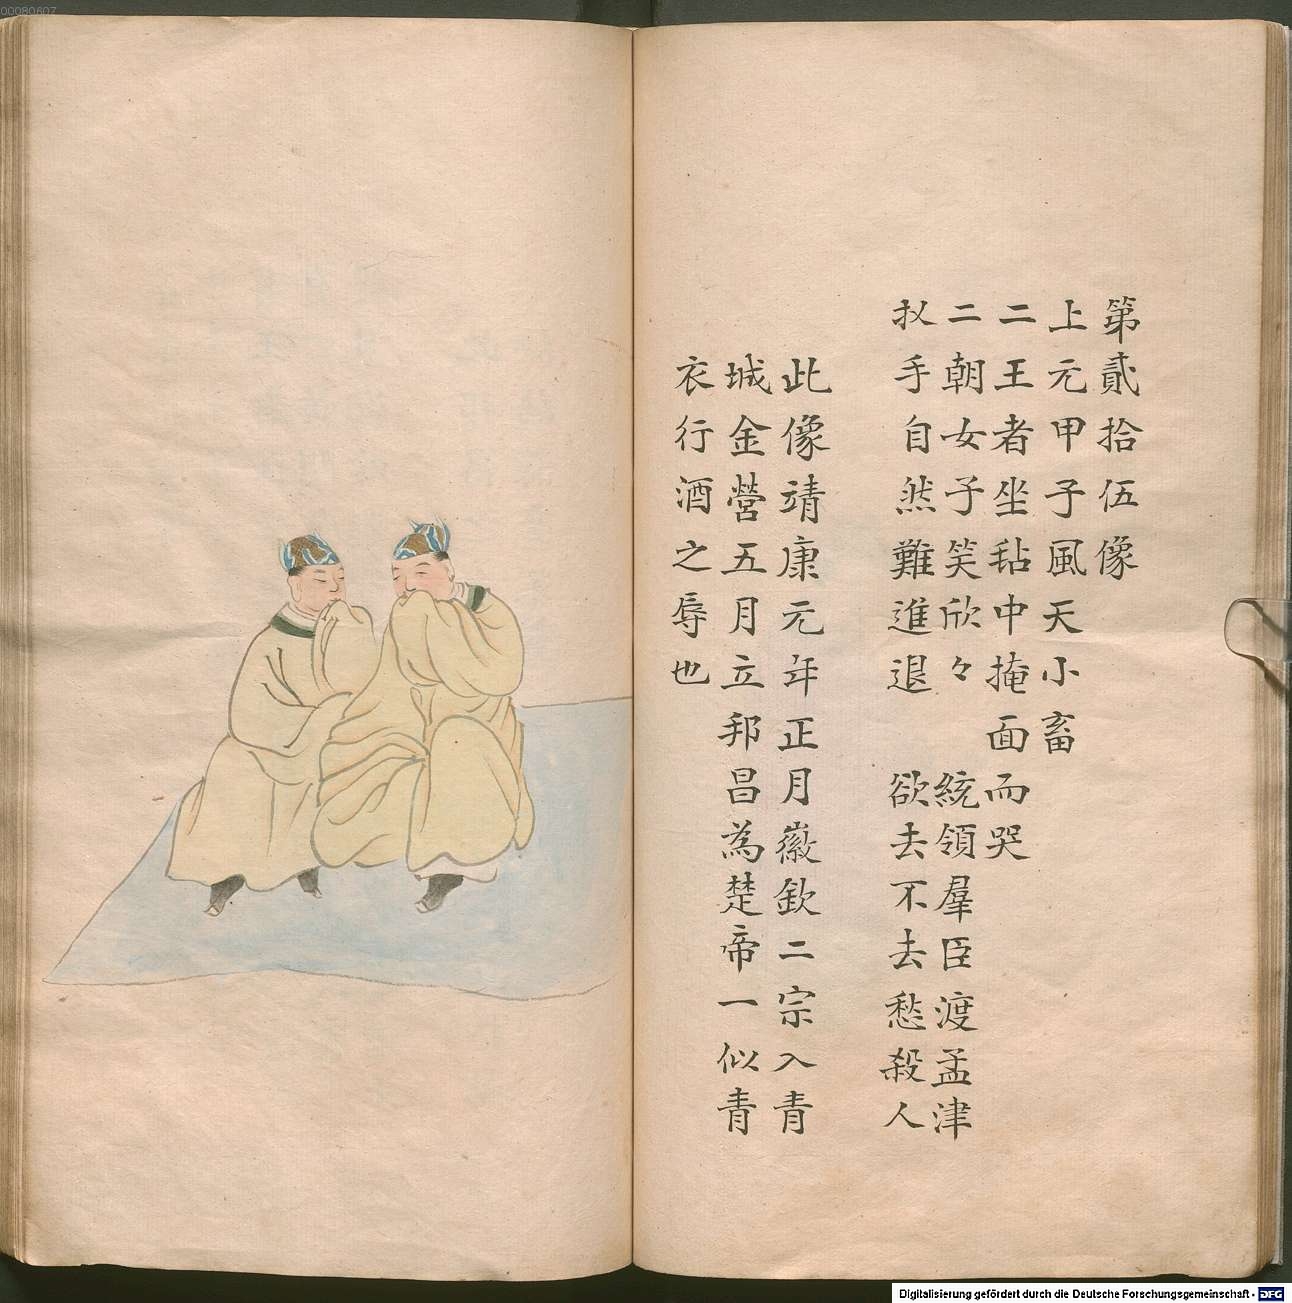 00080607
第貳拾伍像
上元甲子風天小畜
二王者坐毡中掩面而哭
二朝女子笑欣々 統領羣臣渡孟津
扖手自然難進退 欲去不去愁殺人
此像靖康元年正月徽欽二宗入青
城金營五月立邦昌為楚帝一似青
衣行酒之辱也
Digitalisierung gefördert durch die Deutsche Forschungsgemeinschaft - DFG